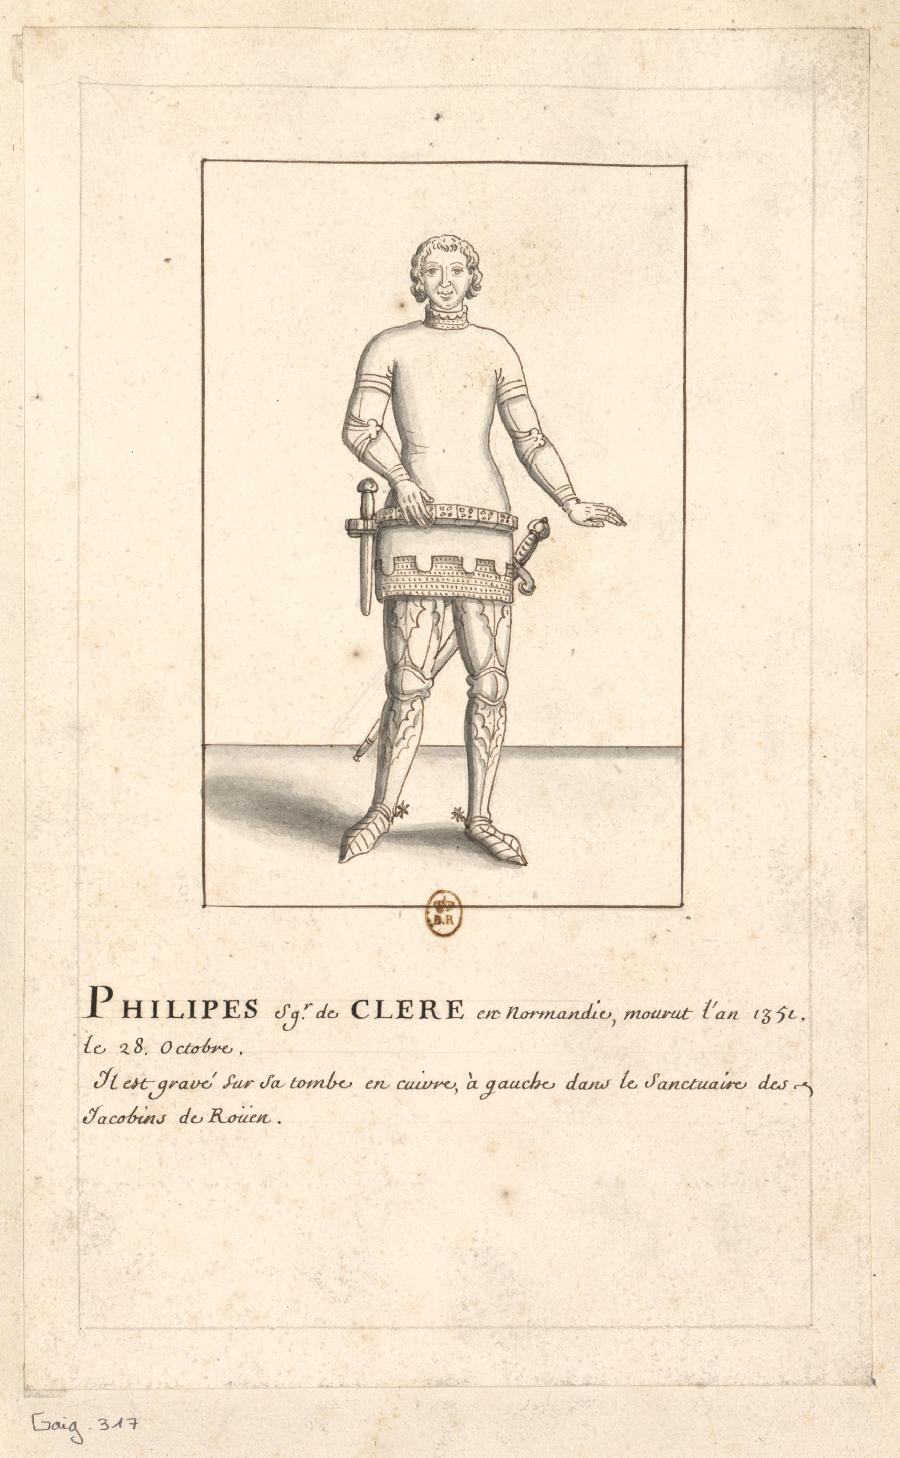 B.R
PHILIPES Sgr. de CLERE en Normandie, mourut l'an 1351.
le 28. Octobre.
Il est gravé sur sa tombe en cuivre, à gauche dans le Sanctuaire des
Jacobins de Roüen.
Gaig. 317